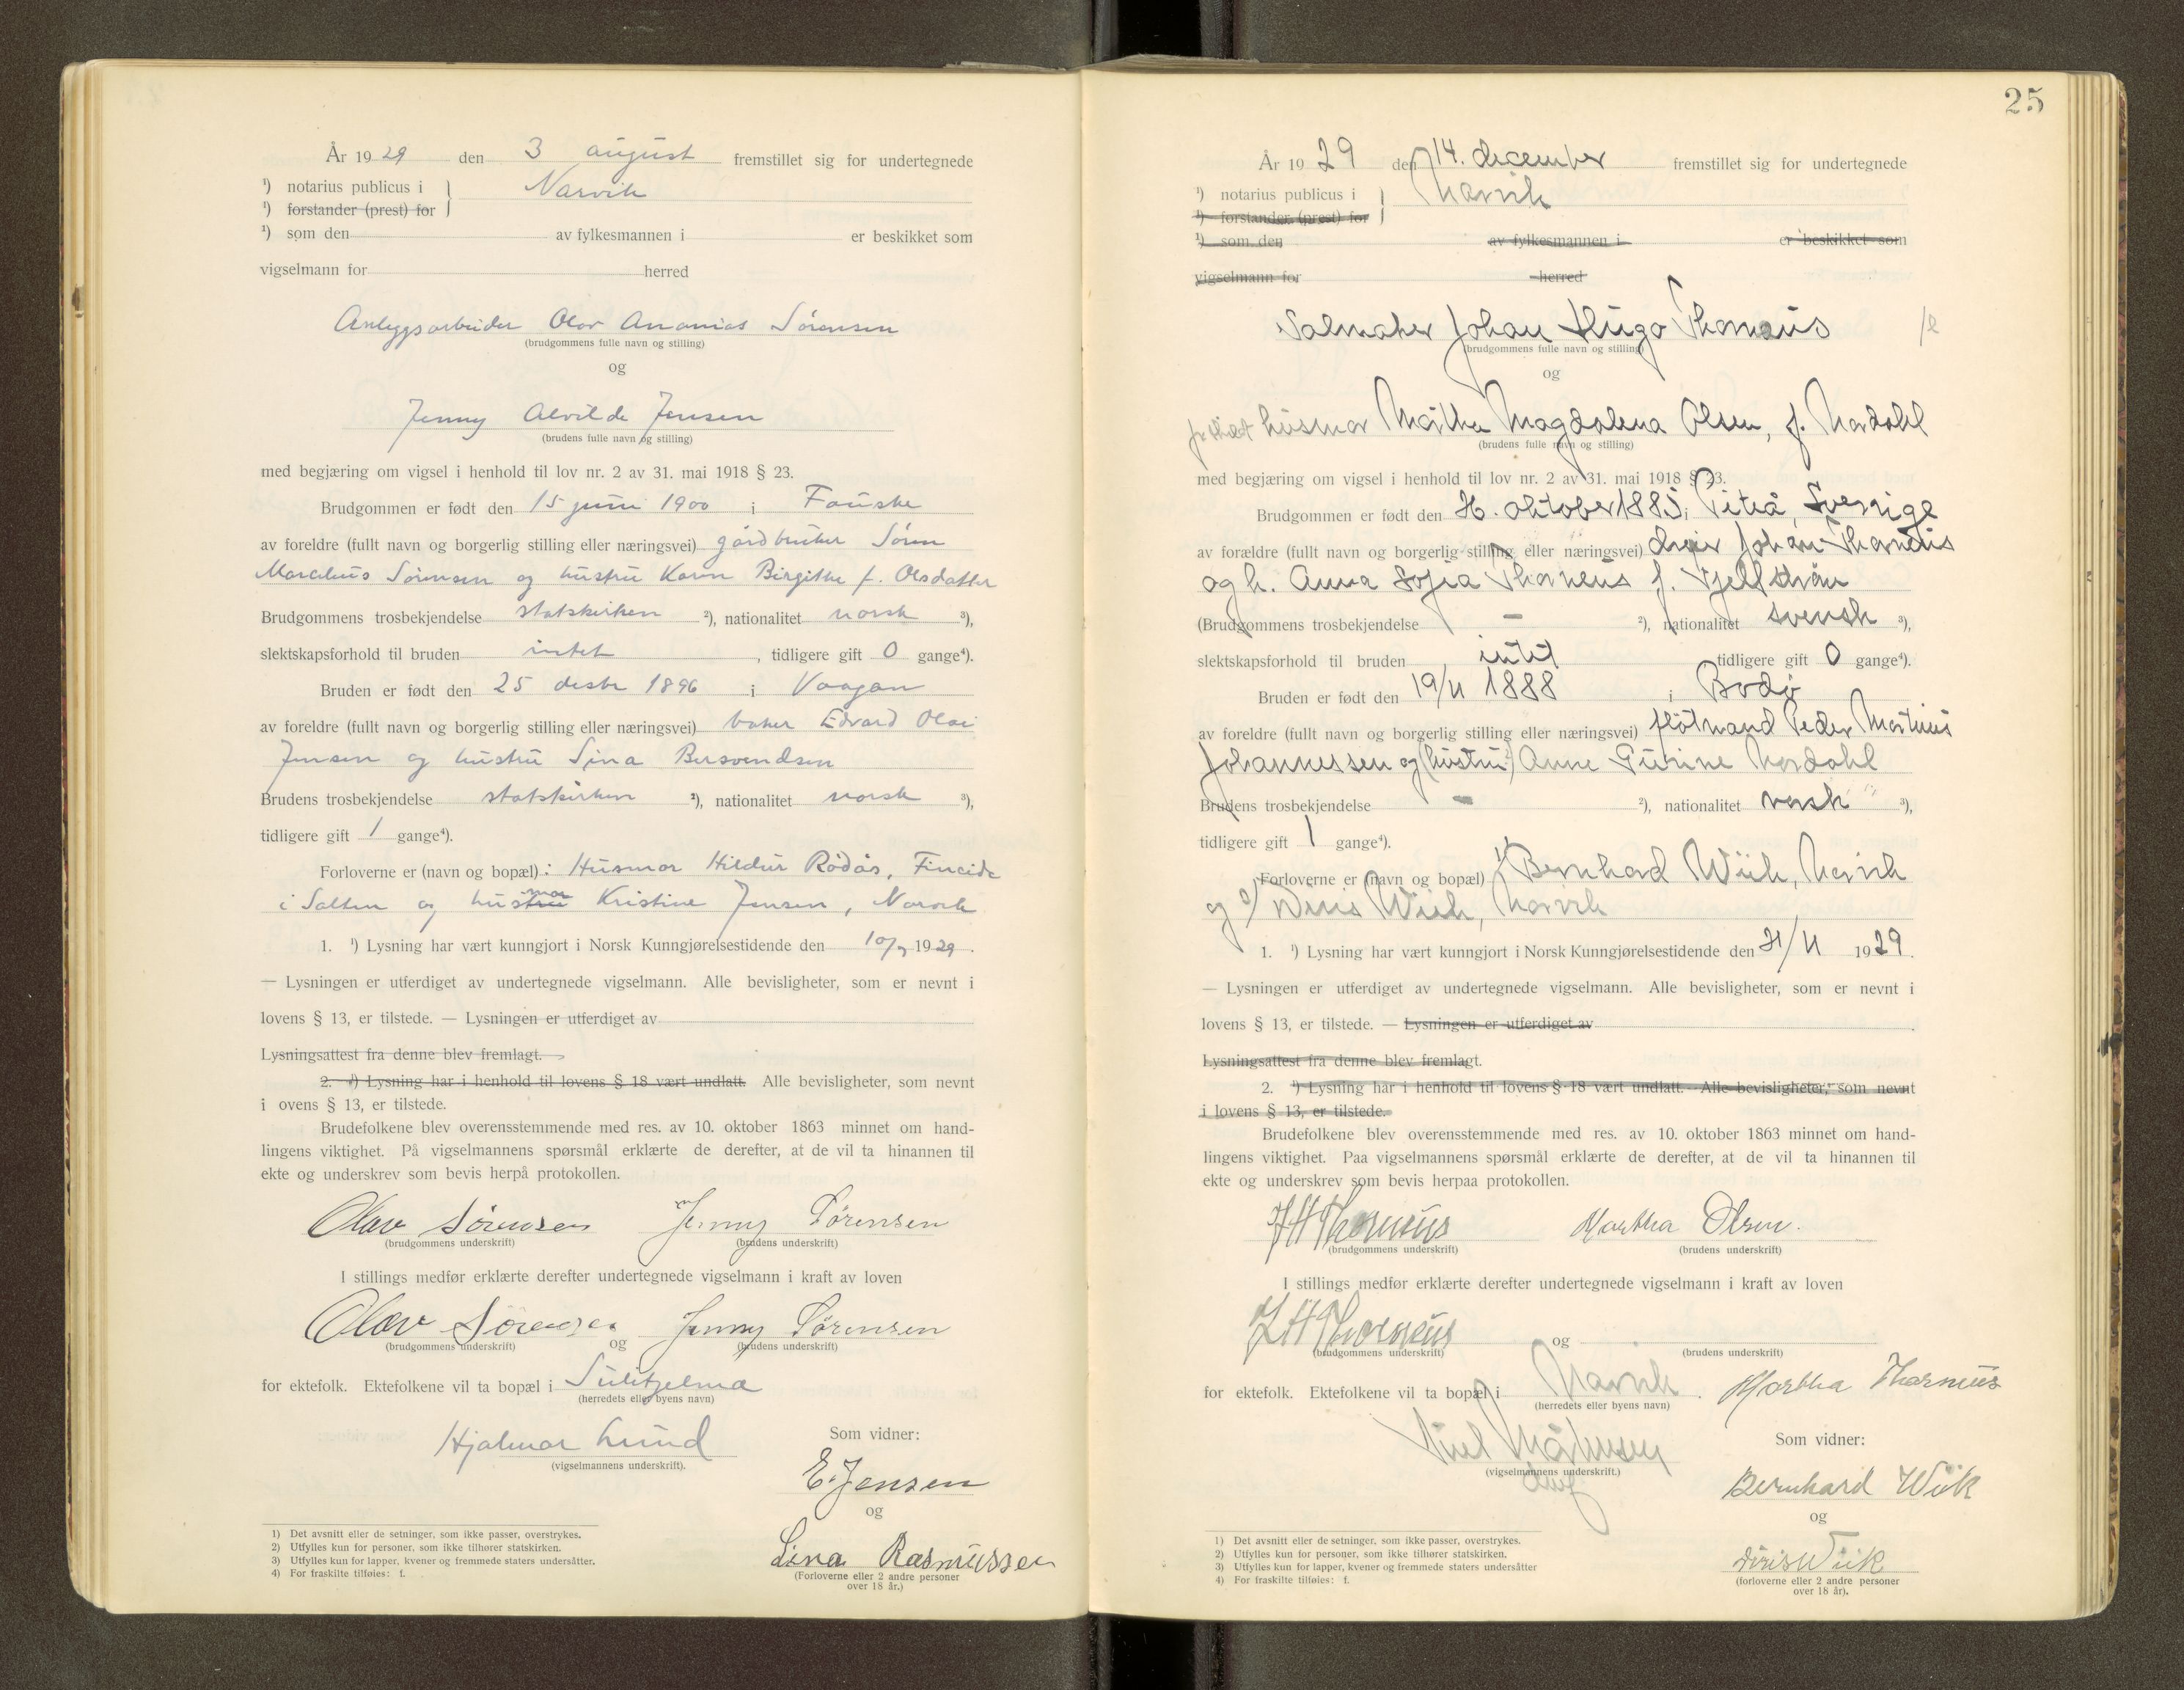 År 19 29 den 3 august fremstillet sig for undertegnede
¹) notarius publicus i } Narvik
¹) forstander (prest) for
¹) som den av fylkesmannen i er beskikket som
vigselmann for herred
Anleggsarbeider Olav Ananias Sørensen
(brudgommens fulle navn og stilling)
og
Jenny Alvilde Jensen
(brudens fulle navn og stilling)
med begjæring om vigsel i henhold til lov nr. 2 av 31. mai 1918 § 23.
Brudgommen er født den 15 juni 1900 i Fauske
av foreldre (fullt navn og borgerlig stilling eller næringsvei) gårdbruker Søren
Marelius Sørensen og hustru Karen Birgithe f. Olsdatter
Brudgommens trosbekjendelse statskirken ²), nationalitet norsk ³),
slektskapsforhold til bruden intet , tidligere gift 0 gange⁴).
Bruden er født den 25 desbr 1896 i Vaagan
av foreldre (fullt navn og borgerlig stilling eller næringsvei) baker Edvard Olai
Jensen og hustru Sina Bersvendsen
Brudens trosbekjendelse statskirken ²), nationalitet norsk ³),
tidligere gift 1 gange⁴).
Forloverne er (navn og bopæl) : Husmor Hildur Rødås, Fineide
i Salten og husmor Kristine Jensen, Narvik
1. ¹) Lysning har vært kunngjort i Norsk Kunngjørelsestidende den 10/7 1929 .
— Lysningen er utferdiget av undertegnede vigselmann. Alle bevisligheter, som er nevnt i
lovens § 13, er tilstede. — Lysningen er utferdiget av
Lysningsattest fra denne blev fremlagt.
2. ¹) Lysning har i henhold til lovens § 18 vært undlatt. Alle bevisligheter, som nevnt
i ovens § 13, er tilstede.
Brudefolkene blev overensstemmende med res. av 10. oktober 1863 minnet om hand-
lingens viktighet. På vigselmannens spørsmål erklærte de derefter, at de vil ta hinannen til
ekte og underskrev som bevis herpå protokollen.
Olav Sørensen Jenny Sørensen
(brudgommens underskrift) (brudens underskrift)
I stillings medfør erklærte derefter undertegnede vigselmann i kraft av loven
Olav Sørensen og Jenny Sørensen
(brudgommens underskrift) (brudens underskrift)
for ektefolk. Ektefolkene vil ta bopæl i Sulitjelma
(herredets eller byens navn)
Hjalmar Lund
(vigselmannens underskrift).
Som vidner:
E. Jensen
og
Lina Rasmussen
(Forloverne eller 2 andre personer
over 18 år.)
1) Det avsnitt eller de setninger, som ikke passer, overstrykes.
2) Utfylles kun for personer, som ikke tilhører statskirken.
3) Utfylles kun for lapper, kvener og fremmede staters undersåtter.
4) For fraskilte tilføies: f.
25
År 19 29 den 14. december fremstillet sig for undertegnede
¹) notarius publicus i } Narvik
¹) forstander (prest) for
¹) som den av fylkesmannen i er beskikket som
vigselmann for herred
Salmaker Johan Hugo Thorneus
(brudgommens fulle navn og stilling)
og
husmor Martha Magdalena Olsen, f. Nordahl
(brudens fulle navn og stilling)
med begjæring om vigsel i henhold til lov nr. 2 av 31. mai 1918 § 23.
Brudgommen er født den 26. oktober 1885 i Piteå, Sverige
av forældre (fullt navn og borgerlig stilling eller næringsvei) Johan Thorneus
og h. Anna Sofia Thorneus f.
(Brudgommens trosbekjendelse - ²), nationalitet svensk ³),
slektskapsforhold til bruden intet tidligere gift 0 gange⁴).
Bruden er født den 19/11 1888 i Bodø
av foreldre (fullt navn og borgerlig stilling eller næringsvei) Peder Martinus
Johannessen og (hustru) Anne Gurine Nordahl
Brudens trosbekjendelse - ²), nationalitet norsk ³),
tidligere gift 1 gange⁴).
Forloverne er (navn og bopæl) 1) Bernhard Wiik, Narvik
og 2) Wiik, Narvik
1. ¹) Lysning har vært kunngjort i Norsk Kunngjørelsestidende den 21/11 1929.
— Lysningen er utferdiget av undertegnede vigselmann. Alle bevisligheter, som er nevnt i
lovens § 13, er tilstede. — Lysningen er utferdiget av .
Lysningsattest fra denne blev fremlagt.
2. ¹) Lysning har i henhold til lovens § 18 vært undlatt. Alle bevisligheter, som nevnt
i lovens § 13, er tilstede.
Brudefolkene blev overensstemmende med res. av 10. oktober 1863 minnet om hand-
lingens viktighet. Paa vigselmannens spørsmål erklærte de derefter, at de vil ta hinannen til
ekte og underskrev som bevis herpaa protokollen.
J H Thorneus Martha Olsen.
(brudgommens underskrift) (brudens underskrift)
I stillings medfør erklærte derefter undertegnede vigselmann i kraft av loven
J H Thorneus og
(brudgommens underskrift) (brudens underskrift)
for ektefolk. Ektefolkene vil ta bopæl i Narvik . Martha Thorneus
(herredets eller byens navn)
(vigselmannens underskrift.)
Som vidner:
Bernhard Wiik
og
Wiik
(forloverne eller 2 andre personer
over 18 år).
1) Det avsnitt eller de setninger, som ikke passer, overstrykes.
2) Utfylles kun for personer, som ikke tilhører statskirken.
3) Utfylles kun for lapper, kvener og fremmede staters undersåtter
4) For fraskilte tilføies: f.